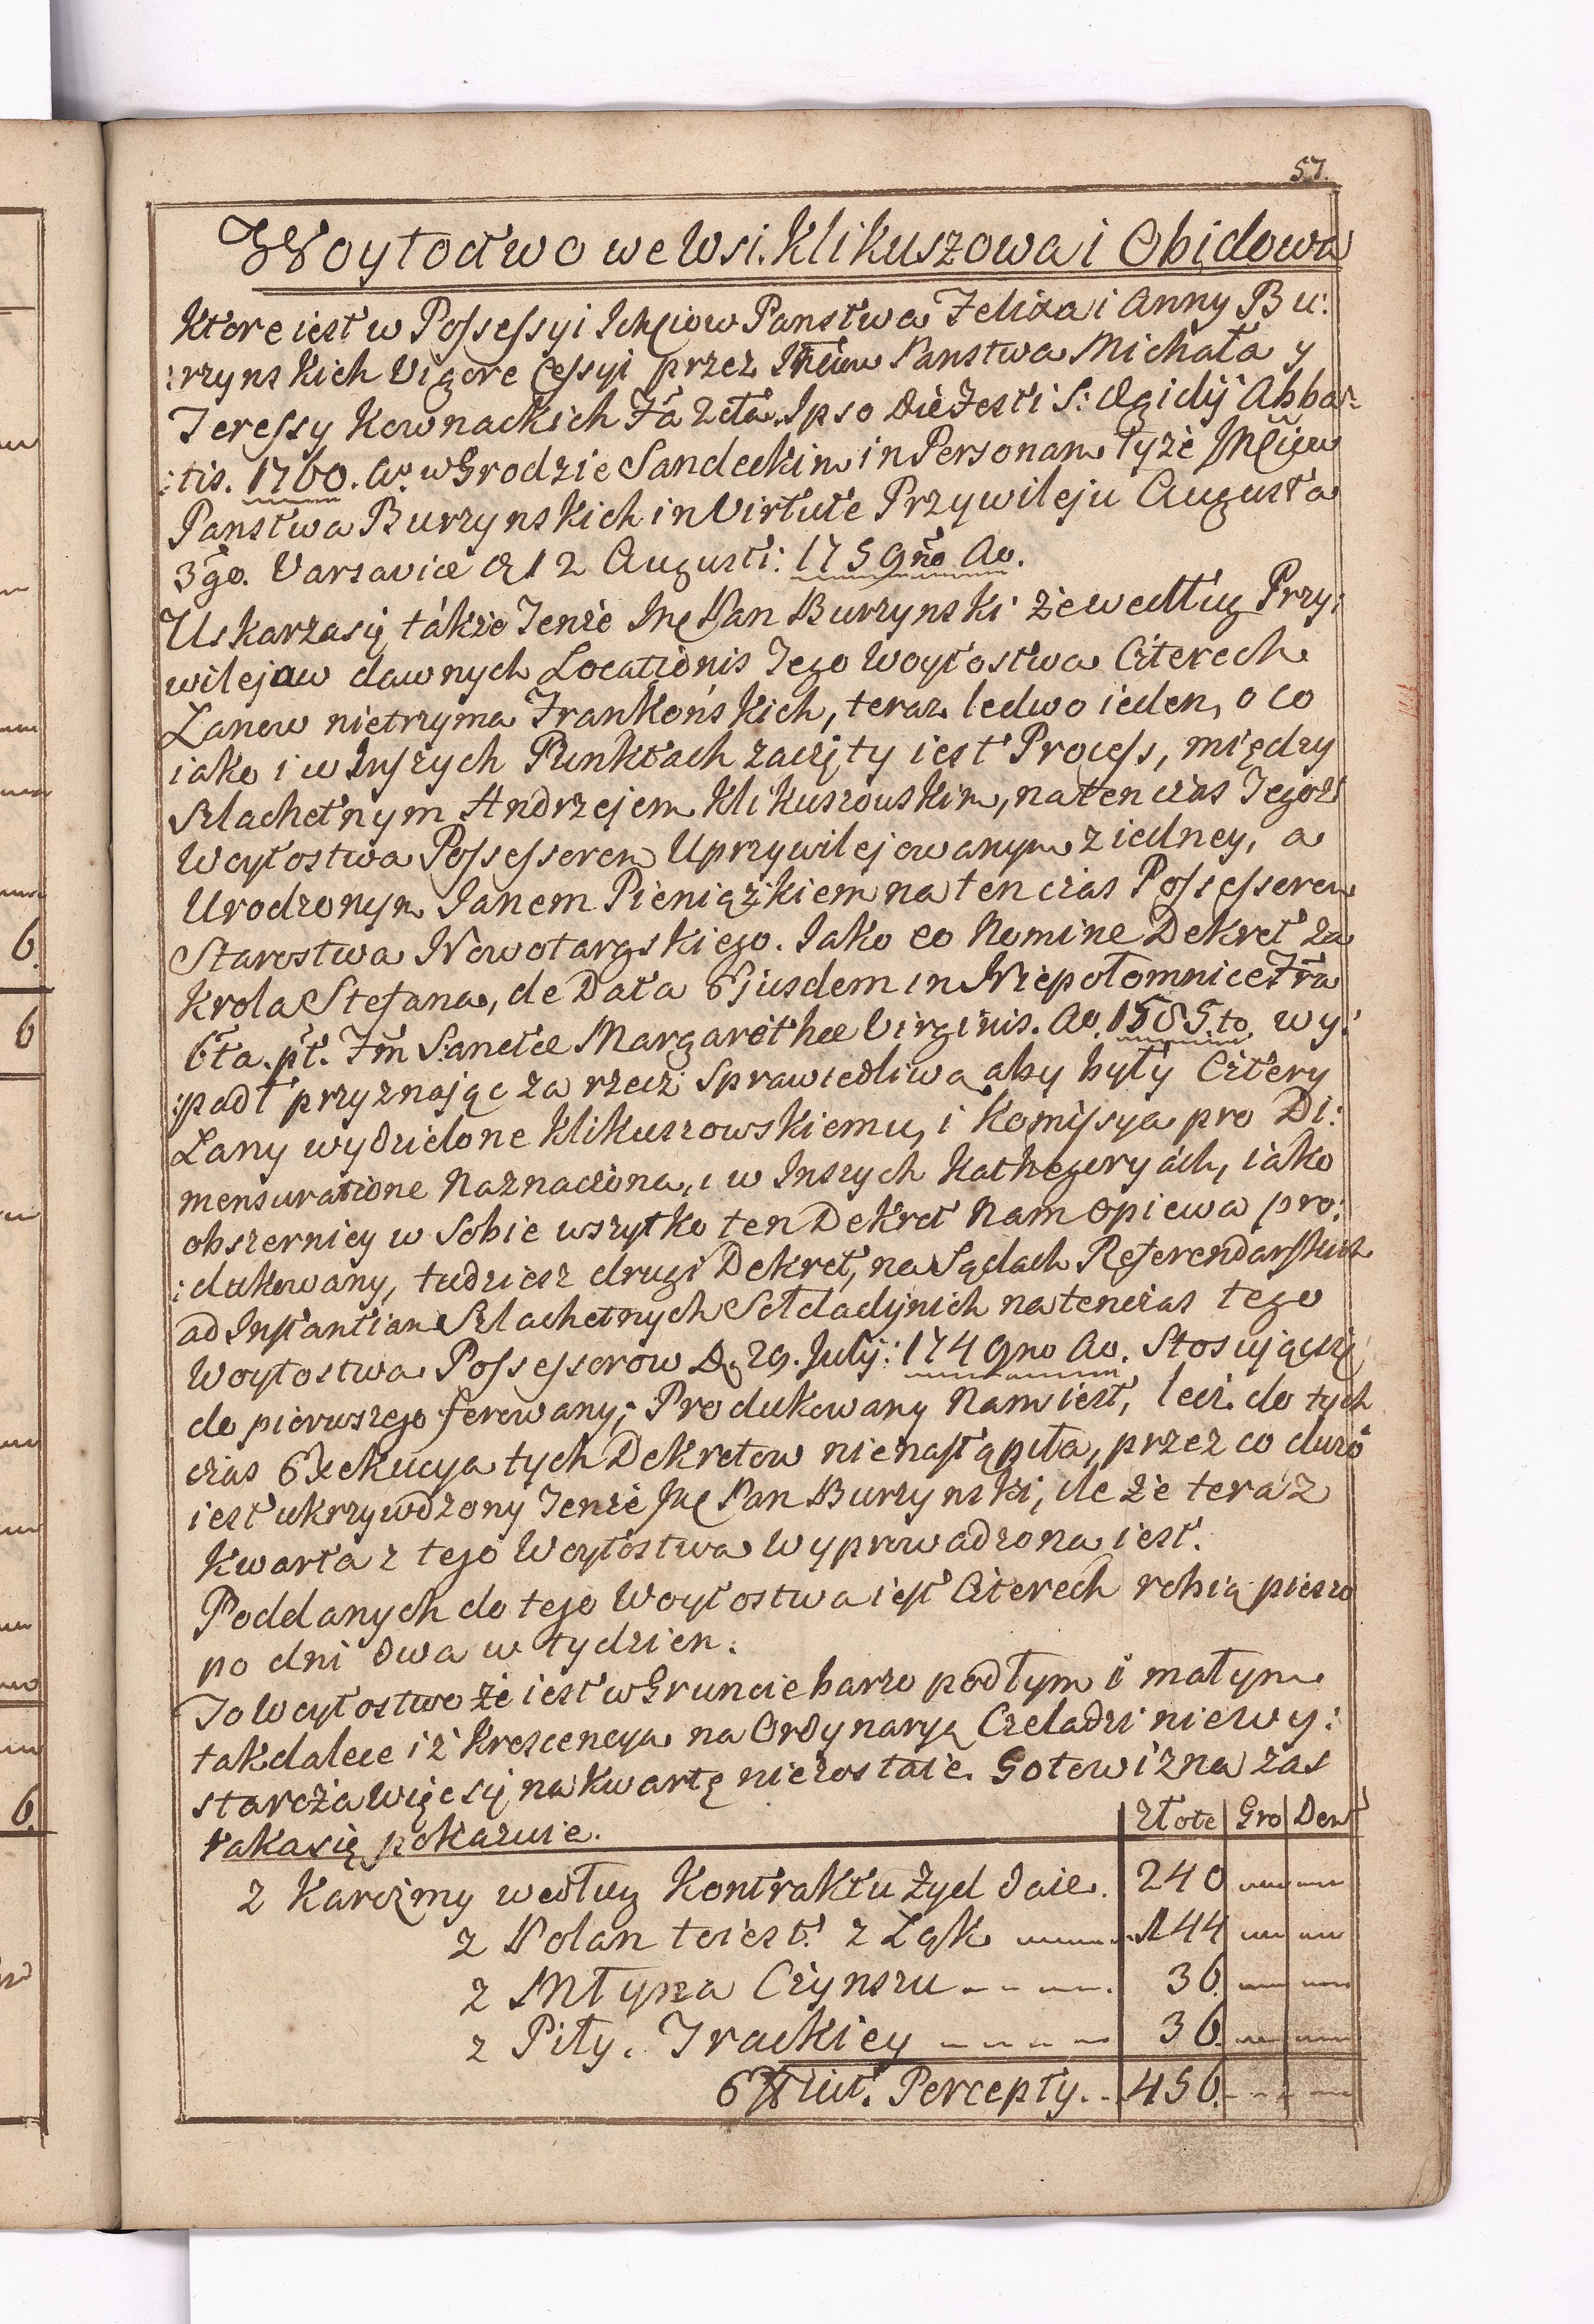 57.
Woytostwo we Wsi. Klikuszowa i Obidowa
Ktore iest w Possessyi Ichmciow Panstwa Felixa i Anny Bu:
:rzynskich Vigore Cessyi przez Panstwa Michała y
Teressy Kownackich Ipso Die Festi S: Ægidij Abba:
:tis. 1760. Ao. w Grodzie Sandeckim in Personam tyże
Panstwa Burzynskich in Virtute Przywileju Augusta
3go. Varsaviæ D 12 Augusti: 1759no Ao.
Uskarza się tákże Tenże Pan Burzynski że według Przy:
wilejow dawnych Locationis Tego Woytostwa Czterech
Łanow nietrzyma Frankońskich, teraz ledwo ieden, o co
iako i w Inszych Punktach zaczęty iest Process, między
Szlachetnym Andrzejem Klikuszowskim, natenczas Tegoż
Woytostwa Possessorem Uprzywilejowanym z iedney, a
Urodzonym Janem Pieniążkiem na ten czas Possessorem
Starostwa Nowotargskiego. Jako eo Nomine Dekret za
Krola Stefana, de Data Ejusdem in Niepołomnice Fra
6ta. pt. Fm Sanctæ Margarethæ Virginis. Ao. 1585.to. wy:
:padł przyznając za rzecz Sprawiedliwą aby były Cztery
Łany wydzielone Klikuszowskiemu, i Komissya pro Di:
mensuratione Naznaczona, i w Inszych Kathegoryách, iako
obszerniey w Sobie wszytko ten Dekret Nam Opiewa pro:
:dukowany, tudziesz drugi Dekret, na Sądach Referendarskich
ad Instantiam Szlachetnych natenczas tego
Woytostwa Possessorow D. 29. Julij: 1749no Ao. Stosujący się
do pierwszego ferowany; Produkowany Nam iest, lecz do tych
czas Exekucya tych Dekretow nie nastąpiła, przez co dużo
iest ukrzywdzony Tenże Pan Burzynski, ile że teraz
Kwarta z tego Woytostwa Wyprowadzona iest.
Poddanych do tego Woytostwa iest Czterech robią pieszo
po dni dwa w tydzien.
To Woytostwo że iest w Gruncie barzo podłym i małym
tak dalece iż Krescencya na Ordynaryą Czeladzi niewy:
starcza więc się na Kwartę niezostaie. Gotowizna zas
taka się pokazuie.
Złote Gro Den
z Karczmy według Kontraktu Żyd daie. 240
z Polan toiest. z Łąk 144
z Młyna Czynszu 36.
z Piły. Trackiey 36.
Percepty. 456.
6.
6
6.